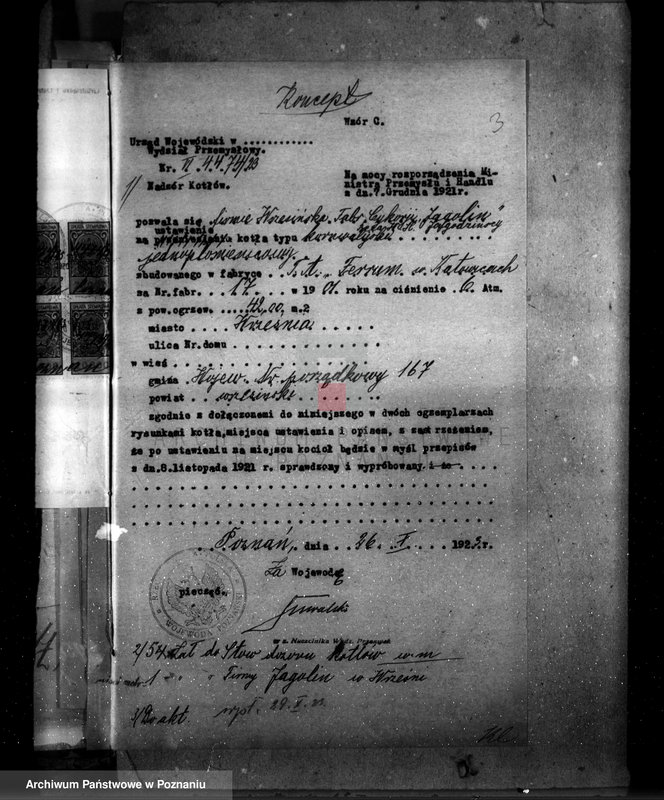 Koncept
Wzór C.
3
Urząd Wojewódzki w ............
Wydział Przemysłowy.
Nr. VI. 4.4.
Na mocy rozporządzenia Mi-
nistra Przemysłu i Handlu
z dn.7.Grudnia 1921r.
1/ Nadzór Kotłów.
pozwala się firmie Wrzesińska Fabr. "Jagolin"
ustawienie
na kotła typu
jednopłomiennowy
zbudowanego w fabryce T.A. "Ferrum" w Katowicach
za Nr.fabr. . . 17 . . . w 19 01. roku na ciśnienie . 6. Atm.
z pow.ogrzew. ..... 42.00, m.2
miasto .... Września. .....
ulica Nr.domu . . . . . . . . . . . . .
w wieś . . . . . . . . . . . . . . . .
gmina . Wojew. Nr porządkowy 167
powiat . . . . . . . .
zgodnie z dołączonemi do niniejszego w dwóch egzemplarzach
rysunkami kotła,miejsca ustawienia i opisem, z zastrzeżeniem,
że po ustawieniu na miejscu kocioł będzie w myśl przepisów
z dn.8.listopada 1921 r. sprawdzony i wypróbowany
Poznań, dnia . . 26. X. . . . 1923.r.
Za Wojewodę
pieczęć.
w z. Naczelnika Wydz. Przemysł.
2/ do Stow dozoru Kotłów w m
1 " " Firmy Jagolin w Wrześni
3/ Do akt.
Archiwum Państwowe w Poznaniu